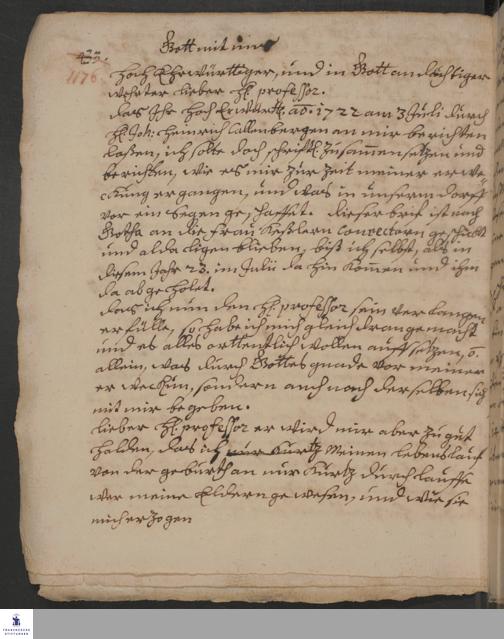 Gott mit uns
1176.
hoch Ehrwürttiger, und in Gott andächtiger
wehrter lieber H: professor.
das Ihr hoch Erwürtt: ao: 1722 am 3 Juli durch
H: Joh: Heinrich Callenbergen an mir berichten
laßen, ich solte doch schriftl: zusammensetzen und
berichten, wie es mir zur Zeit meiner erwe
ckung ergangen, und was in unserm dorff
vor ein Segen geschaffet. dieser brif ist nach
Gotha an die frau Keßlern Conrectorn geschickt
und alda ligen blieben, biß ich selbst, als in
diesem Jahr 23. im Julii da hin komen und ihn
da abgeholet.
das ich nun den H: professor sein verlangen
erfülle, so habe ich mich gleich dran gemacht
und es alles orthentlich wollen auffsetzen,
allein, was durch Gottes gnade vor meiner
erweckung, sondern auch nach derselben sich
mit mir begeben.
lieber H: professor er wird mir aber zu gut
halden, das ich nur kurtz meinen lebenslauf
von der geburth an nur kurtz durchlauffe
wer meine Eldern gewesen, und wie sie
mich erzogen
FRANCKESCHE
STIFTUNGEN